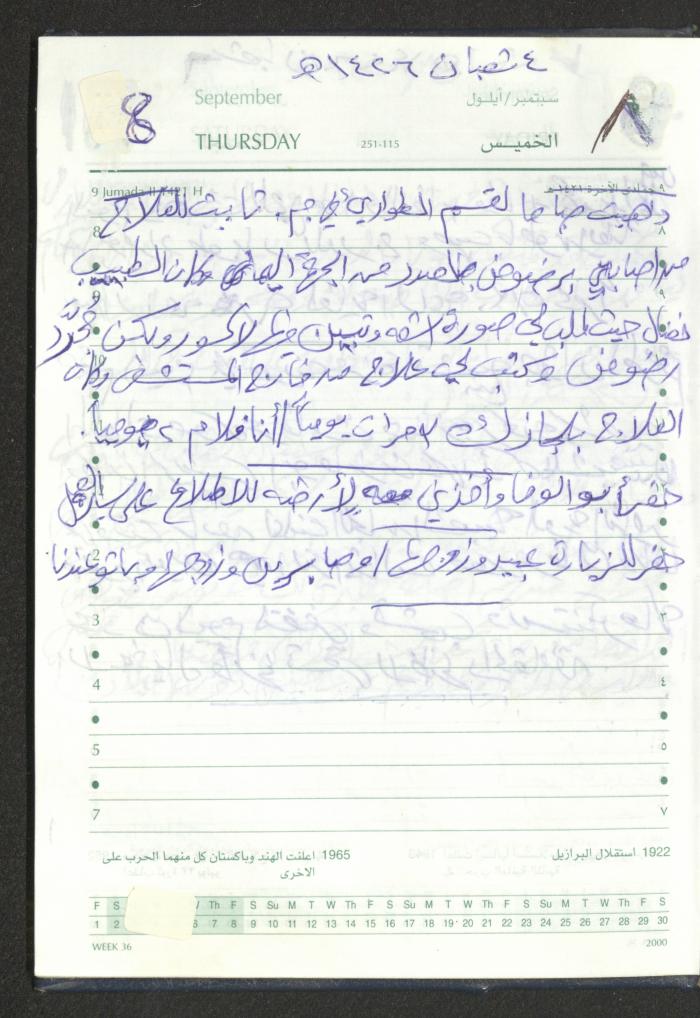 ٤ شعبان ١٤٢٦ هـ
September سبتمبر/أيلول
8 THURSDAY 251-115 الخميس ٨
9 Jumada II 1421 H ٩ جمادى الآخرة ١٤٢١ هـ
ذهبت صباحا لقسم الطوارئ في م. ثابت للعلاج
8 ٨
من اصابتي برضوض بالصدر من الجهة اليمنى وكان الطبيب
9 ٩
نضال حيث طلب لي صورة اشعه وتبين فيها لا كسور ولكن مُجرَّد
رضوض وكتب لي علاج من خارج المستشفى وكان
العلاج بلجاز ك ٣ مرات يومياً / أنافلام ٢ يومياً.
حضر أبو الوفا وأخذني معه لأرضه للاطلاع على سير العمل
2
حضر للزيارة عبير وزوجها / وصابرين وزوجها وباتو عندنا
3 ٣
4 ٤
5 ٥
7 ٧
1922 استقلال البرازيل
1965 اعلنت الهند وباكستان كل منهما الحرب على
الاخرى
F S Th F S Su M T W Th F S Su M T W Th F S Su M T W Th F S
1 2 6 7 8 9 10 11 12 13 14 15 16 17 18 19 20 21 22 23 24 25 26 27 28 29 30
WEEK 36 2000